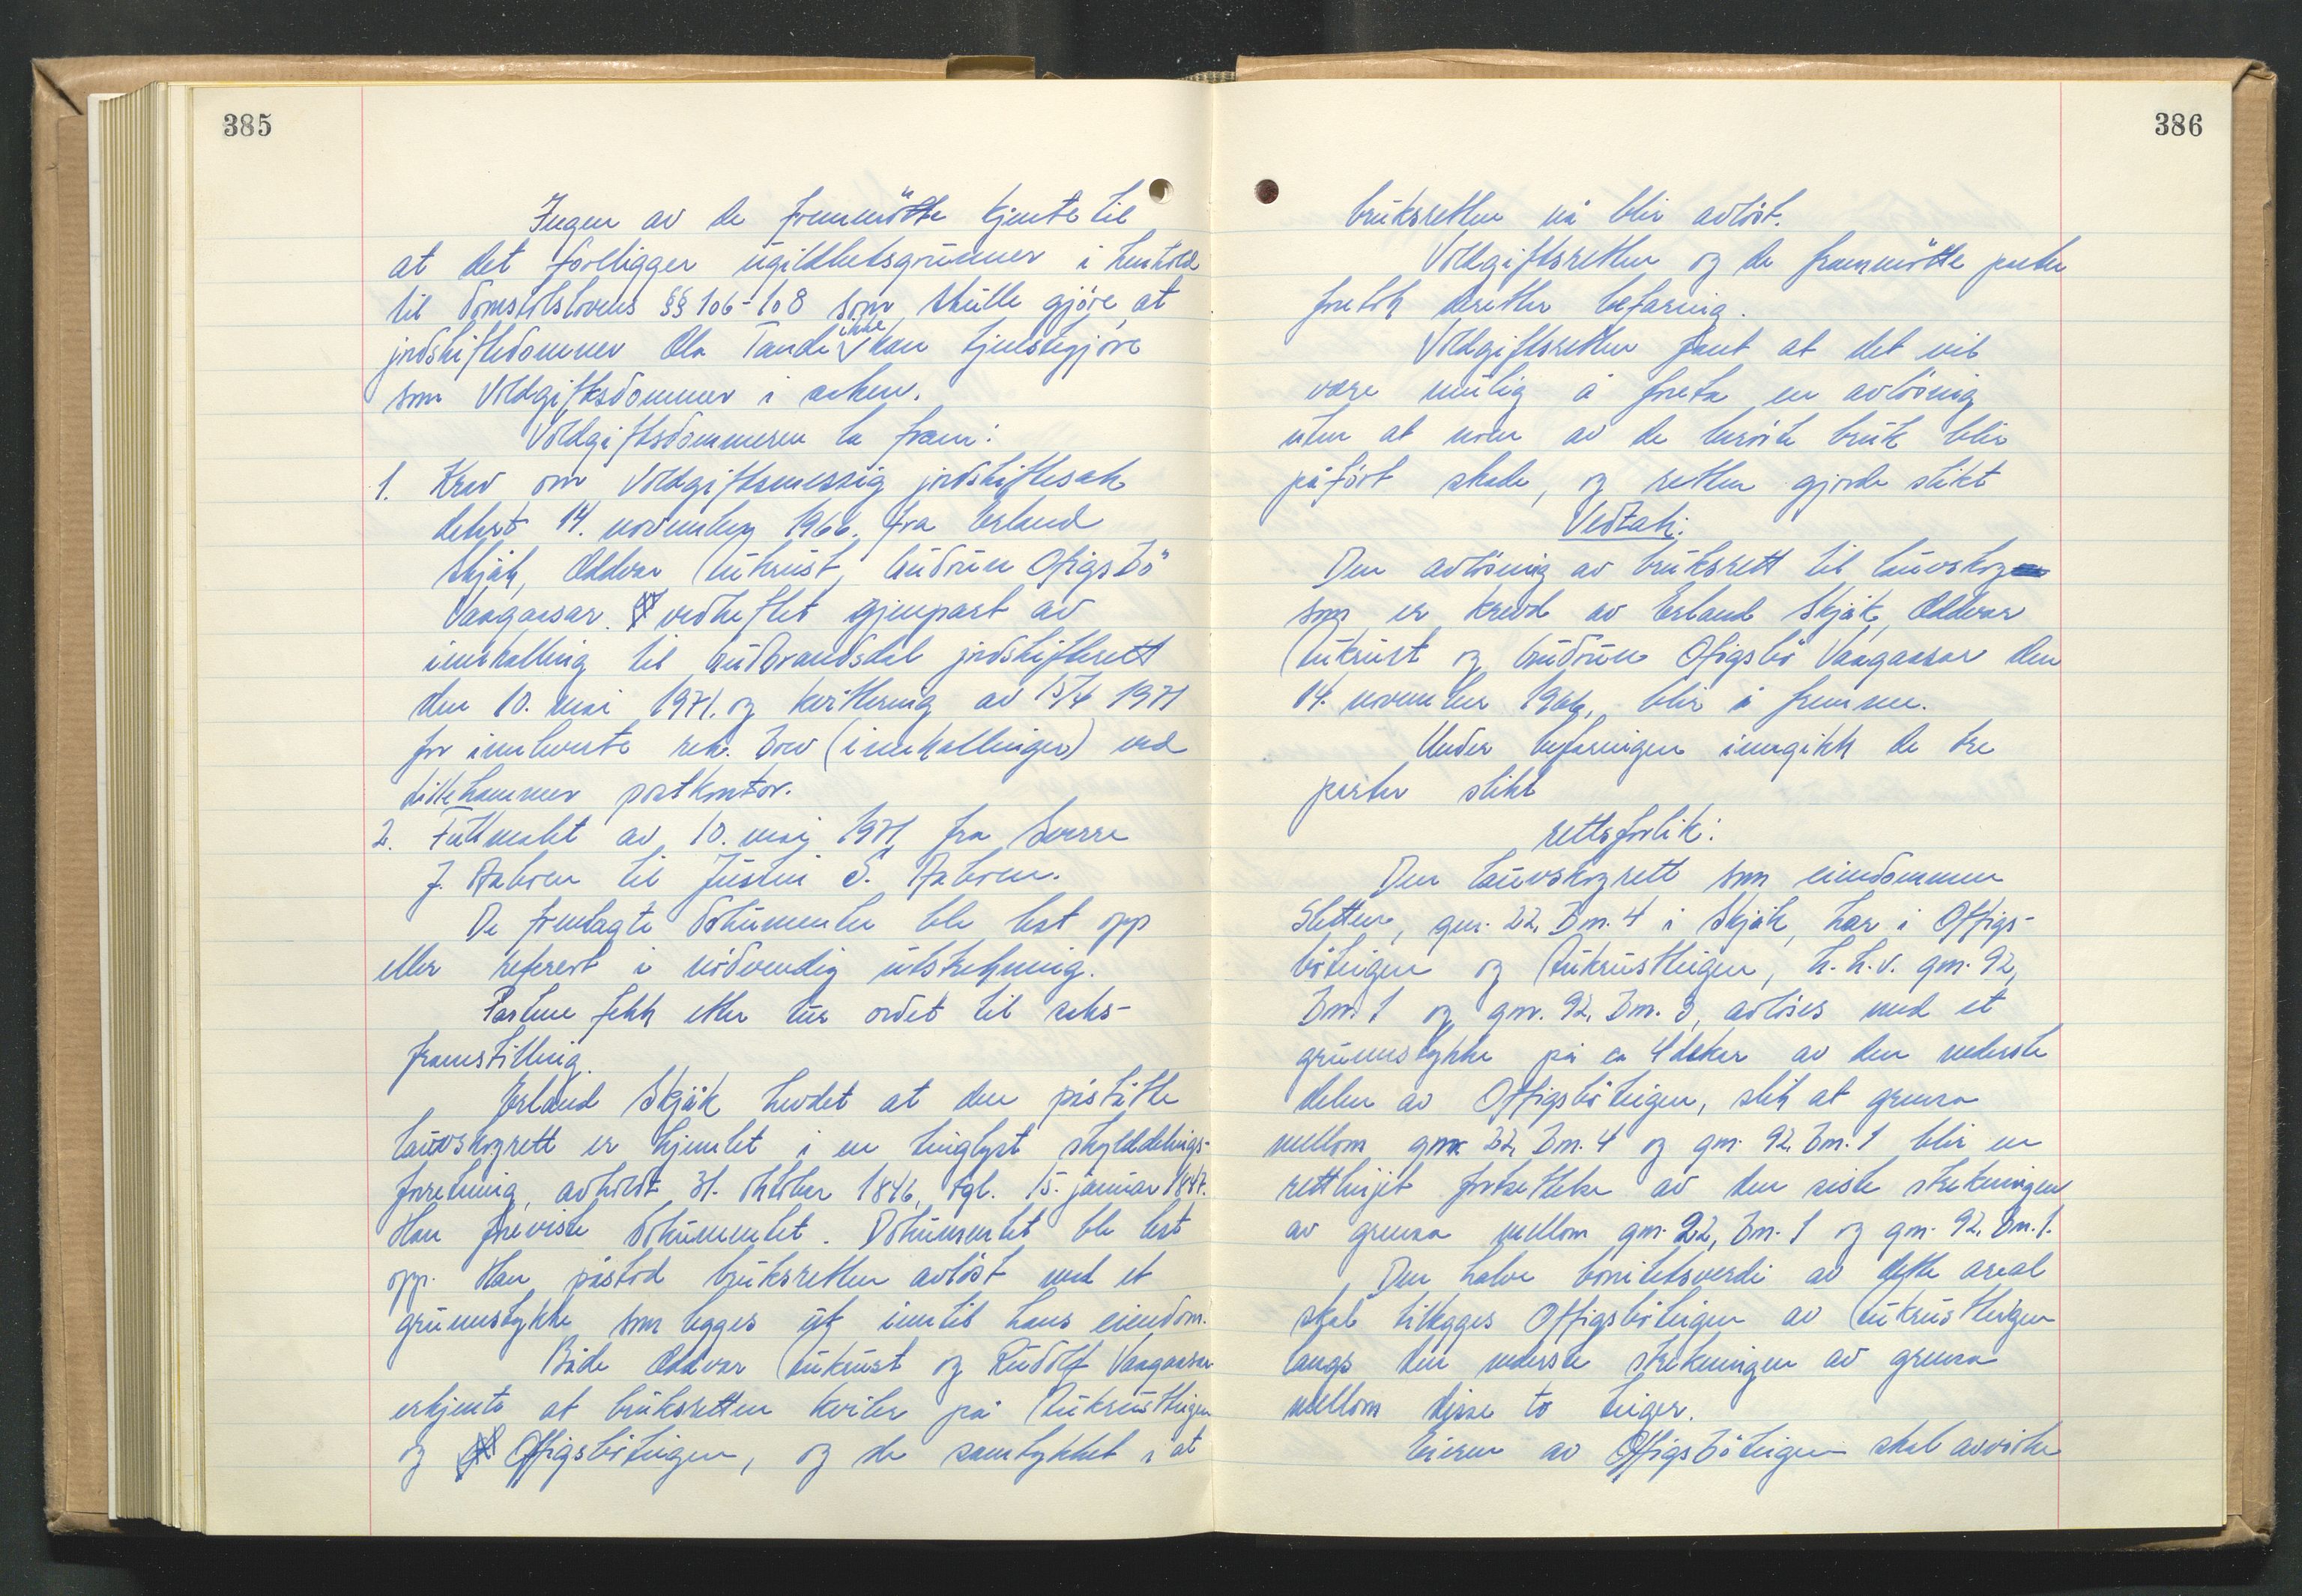 385
Ingen av de fremmötte kjente til
at det forligger ugildhetsgrunner i henhold
til domstolslovens §§ 106-108 som skulle gjöre at
jordskiftedommer Ola Tande ikke kan tjenestegjöre
som voldgiftsdommer i saken.
Voldgiftsdommeren la fram:
1. Krav om voldgiftsmessig jordskiftesak
datert 14. november 1966 fra Erland
Skjåk, Oddvar Lukrust, Gudrun Ofigsbö
Vaagaasar. vedheftet gjenpart av
innkalling til Gudbrandsdal jordskifterett
den 10. mai 1971 og kvittering av 15/4 1971
for innleverte rek. brev (innkallinger) ved
Lillehammer postkontor.
2. Fullmakt av 10. mai 1971 fra Sverre
J. Aaboen til Justin S. Aaboen.
De fremlagte dokumenter ble lest opp
eller referert i nödvendig utstrekning.
Partene fekk etter tur ordet til saks-
framstilling.
Erland Skjåk hevdet at den påståtte
lauvskogrett er hjemlet i en tinglyst skylddelings-
forretning, avholdt 31. oktober 1846, tgl. 15. januar 1847.
Han foreviste dokumentet. Dokumentet ble lest
opp. Han påstod bruksretten avlöst med et
grunnstykke som legges ut inntil hans eiendom.
Både Oddvar Lukrust og Rudolf Vaagaasar
erkjente at bruksretten kviler på Lukrustteigen
og Offigsböteigen, og de samtykket i at
386
bruksretten nå blir avlöst.
Voldgiftsretten og de frammötte parter
foretok deretter befaring.
Voldgiftsretten fant at det vil
være mulig å foreta en avlösning
uten at noen av de berörte bruk blir
påfört skade, og retten gjorde slikt
Vedtak:
Den avlösning av bruksrett til lauvskog
som er krevd av Erland Skjåk, Oddvar
Lukrust og Gudrun Ofigsbö Vaagaasar den
14. november 1966, blir å fremme.
Under befaringen inngikk de tre
parter slikt
rettsforlik:
Den lauvskogrett som eiendommen
Sletten, gnr. 22, bnr. 4 i Skjåk, har i Offigs-
böteigen og Lukrustteigen, h.h.v. gnr. 92,
bnr. 1 og gnr. 92, bnr. 3, avlöses med et
grunnstykke på ca 4 dekar av den nederste
delen av Offigsböteigen, slik at grensa
mellom gnr. 22, bnr. 4 og gnr. 92, bnr. 1 blir en
rettlinjet fortsettelse av den siste strekningen
av grensa mellom gnr. 22, bnr. 1 og gnr. 92, bnr. 1.
Den halve bonitetsverdi av dette areal
skal tillegges Offigsböteigen av Lukrustteigen
langs den nederste strekningen av grensa
mellom disse to teiger.
Eieren av Offigsböteigen skal avvirke